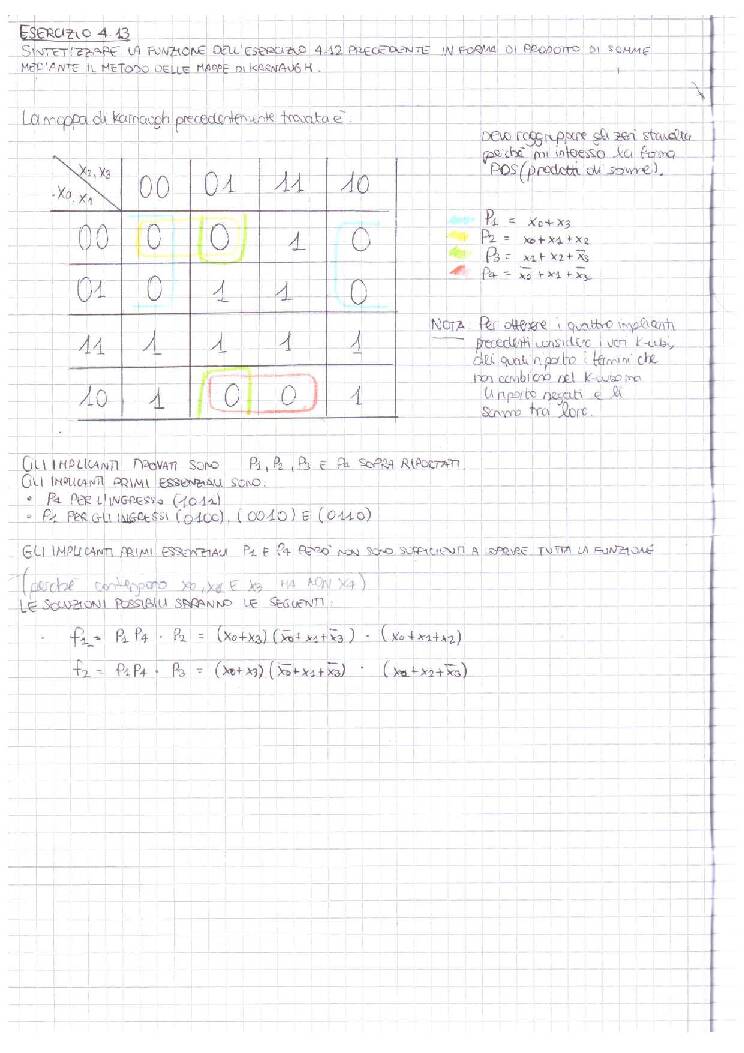 ESERCIZIO 4.13
SINTETIZZARE LA FUNZIONE DELL'ESERCIZIO 4.12 PRECEDENTE IN FORMA DI PRODOTTO DI SOMME
MEDIANTE IL METODO DELLE MAPPE DI KARNAUGH.
La mappa di Karnaugh precedentemente trovata è
Devo raggruppare gli zeri stavolta
perché mi interessa la forma
POS (prodotti di somme).
x2, x3
x0, x1
00 01 11 10
00 0 0 1 0
01 0 1 1 0
11 1 1 1 1
10 1 0 0 1
P1 = x0+x3
P2 = x0+x1+x2
P3 = x1+x2+x̅3
P4 = x̅0+x1+x̅3
NOTA Per ottenere i quattro implicanti
precedenti considero i vari k-cubi,
dei quali riporto i termini che
non cambiano nel k-cubo ma
li riporto negati e li
sommo tra loro.
GLI IMPLICANTI TROVATI SONO P1, P2, P3 E P4 SOPRA RIPORTATI.
GLI IMPLICANTI PRIMI ESSENZIALI SONO:
• P4 PER L'INGRESSO (1011)
• P1 PER GLI INGRESSI (0100), (0010) E (0110)
GLI IMPLICANTI PRIMI ESSENZIALI P1 E P4 PERÒ NON SONO SUFFICIENTI A COPRIRE TUTTA LA FUNZIONE
(perché contengono x0, x1 E x3 MA NON x4)
LE SOLUZIONI POSSIBILI SARANNO LE SEGUENTI:
f1 = P1 P4 · P2 = (x0+x3) (x̅0+x1+x̅3) · (x0+x1+x2)
f2 = P1 P4 · P3 = (x0+x3) (x̅0+x1+x̅3) · (x1+x2+x̅3)